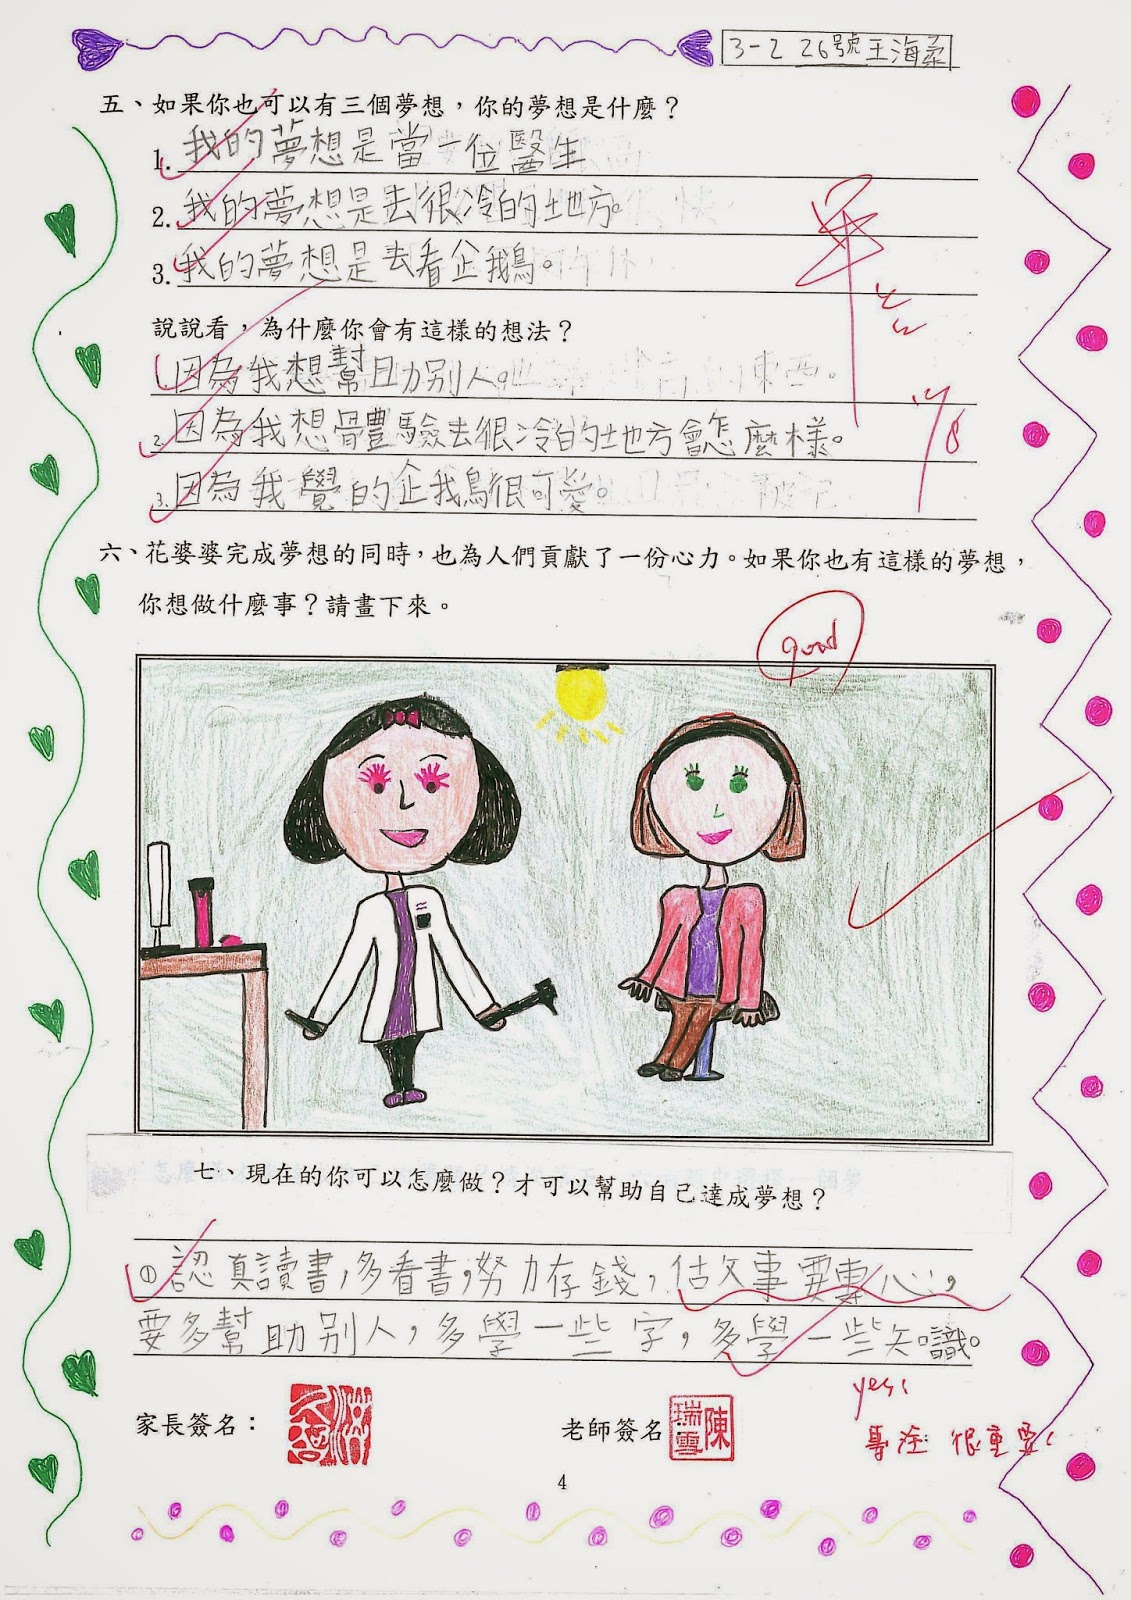 3-2 26號王海柔
五、如果你也可以有三個夢想，你的夢想是什麼？
1. 我的夢想是當一位醫生
2. 我的夢想是去很冷的地方。
3. 我的夢想是去看企鵝。
說說看，為什麼你會有這樣的想法？
1. 因為我想幫助別人。
2. 因為我想體驗去很冷的地方會怎麼樣。
3. 因為我覺的企鵝很可愛。
六、花婆婆完成夢想的同時，也為人們貢獻了一份心力。如果你也有這樣的夢想，
你想做什麼事？請畫下來。
good
七、現在的你可以怎麼做？才可以幫助自己達成夢想？
① 認真讀書，多看書，努力存錢，做事要專心，
要多幫助別人，多學一些字，多學一些知識。
yes!
專注 很重要!
家長簽名：
老師簽名
陳瑞雪
4